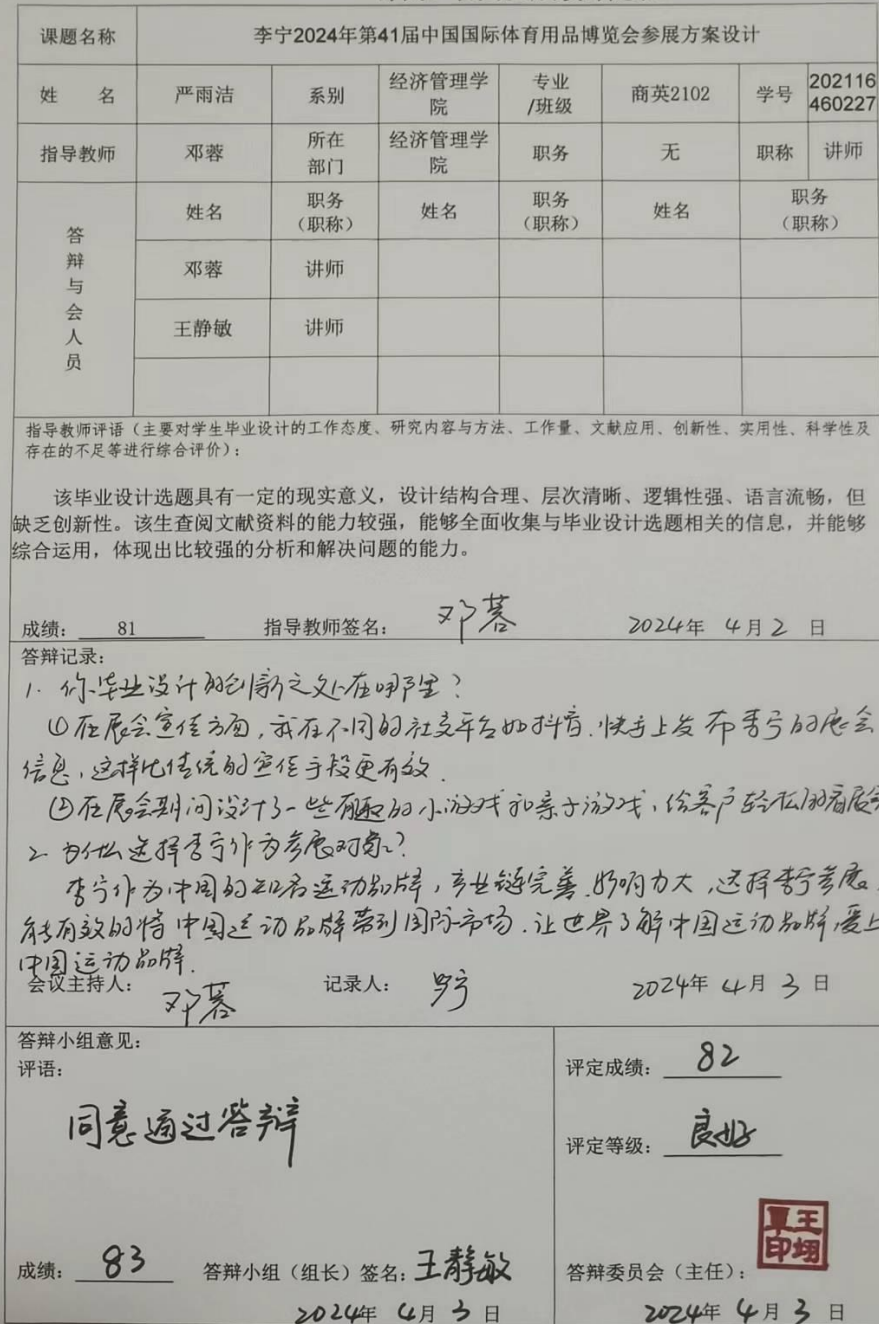 课题名称 李宁2024年第41届中国国际体育用品博览会参展方案设计
姓 名 严雨洁 系别 经济管理学院 专业/班级 商英2102 学号 202116460227
指导教师 邓蓉 所在部门 经济管理学院 职务 无 职称 讲师
答辩与会人员 姓名 职务（职称） 姓名 职务（职称） 姓名 职务（职称）
邓蓉 讲师
王静敏 讲师
指导教师评语（主要对学生毕业设计的工作态度、研究内容与方法、工作量、文献应用、创新性、实用性、科学性及
存在的不足等进行综合评价）：
该毕业设计选题具有一定的现实意义，设计结构合理、层次清晰、逻辑性强、语言流畅，但
缺乏创新性。该生查阅文献资料的能力较强，能够全面收集与毕业设计选题相关的信息，并能够
综合运用，体现出比较强的分析和解决问题的能力。
成绩： 81 指导教师签名： 邓蓉 2024年 4月2 日
答辩记录：
1. 你毕业设计的创新之处在哪里？
①在展会宣传方面，我在不同的社交平台如抖音、快手上发布李宁的展会
信息，这样比传统的宣传手段更有效.
②在展会期间设计了一些有趣的小游戏和亲子游戏，给客户轻松的看展
2. 为什么选择李宁作为参展对象？
李宁作为中国的知名运动品牌，产业链完善.影响力大，选择李宁参展.
能有效的将中国运动品牌带到国际市场.让世界了解中国运动品牌,爱上
中国运动品牌.
会议主持人： 邓蓉 记录人： 2024年 4月 3 日
答辩小组意见：
评语：
同意通过答辩
成绩： 83 答辩小组（组长）签名：王静敏
2024年 4月 3 日
评定成绩： 82
评定等级： 良好
答辩委员会（主任）：
2024年 4月 3 日